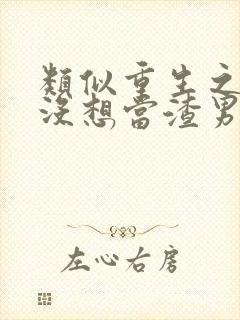 類似重生之
没想當渣男
左心右房